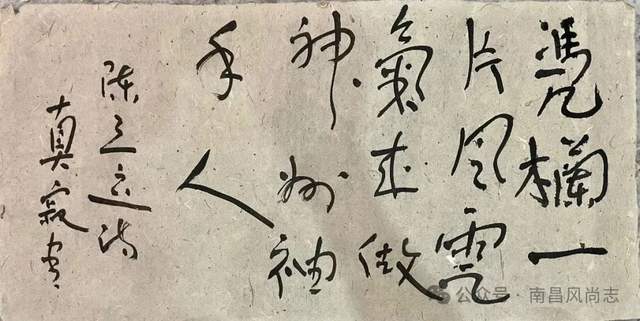 凴欄一
片风雲
氣来做
神州袖
手人
陈三立诗
真寂书
公众号·南昌风尚志